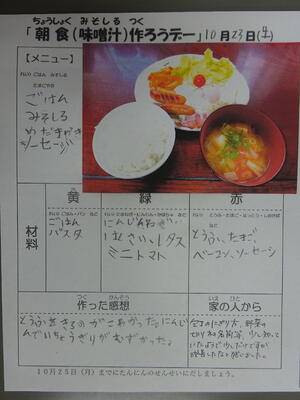 ちょうしょく みそしる つく
「朝食(味噌汁)作ろうデー」10月23日(土)
【メニュー】
れい) ごはん みそしる
たまごやき
ごはん
みそしる
めだまやき
ソーセージ
黄
緑
赤
材料
れい) ごはん・パン など
ごはん
パスタ
れい) たまねぎ・にんじん・かぼちゃ など
にんじん、ねぎ、
はくさい、レタス
ミニトマト
れい) とうふ・たまご・はっとう・しおさば など
とうふ、たまご、
ベーコン、ソーセージ
つく かんそう
作った感想
とうふをきるのがこわかった。にんじ
んでいちょうぎりがむずかった。
いえ ひと
家の人から
包丁のにぎり方、野菜の
切り方の名前等、少し知って
いたようで少しだけですが
成長したなと感じました。
10月25日(月)までにたんにんのせんせいにだしましょう。